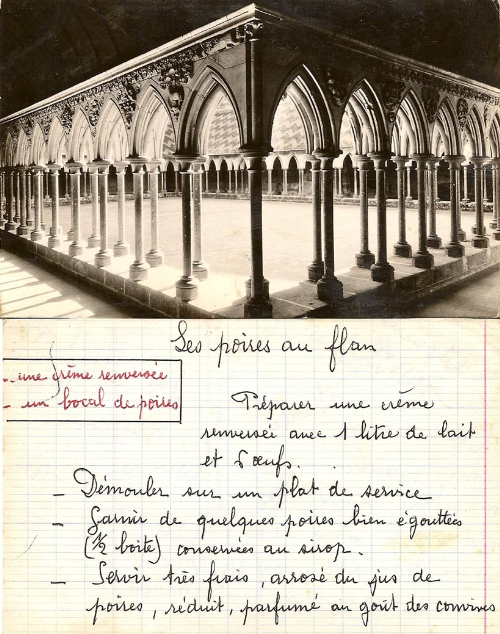 Les poires au flan
- une crème renversée
- un bocal de poires
Préparer une crème
renversée avec 1 litre de lait
et 6 œufs.
- Démouler sur un plat de service
- Garnir de quelques poires bien égouttées
(1/2 boîte) conservées au sirop.
- Servir très frais, arrosé du jus de
poires, réduit, parfumé au goût des convives